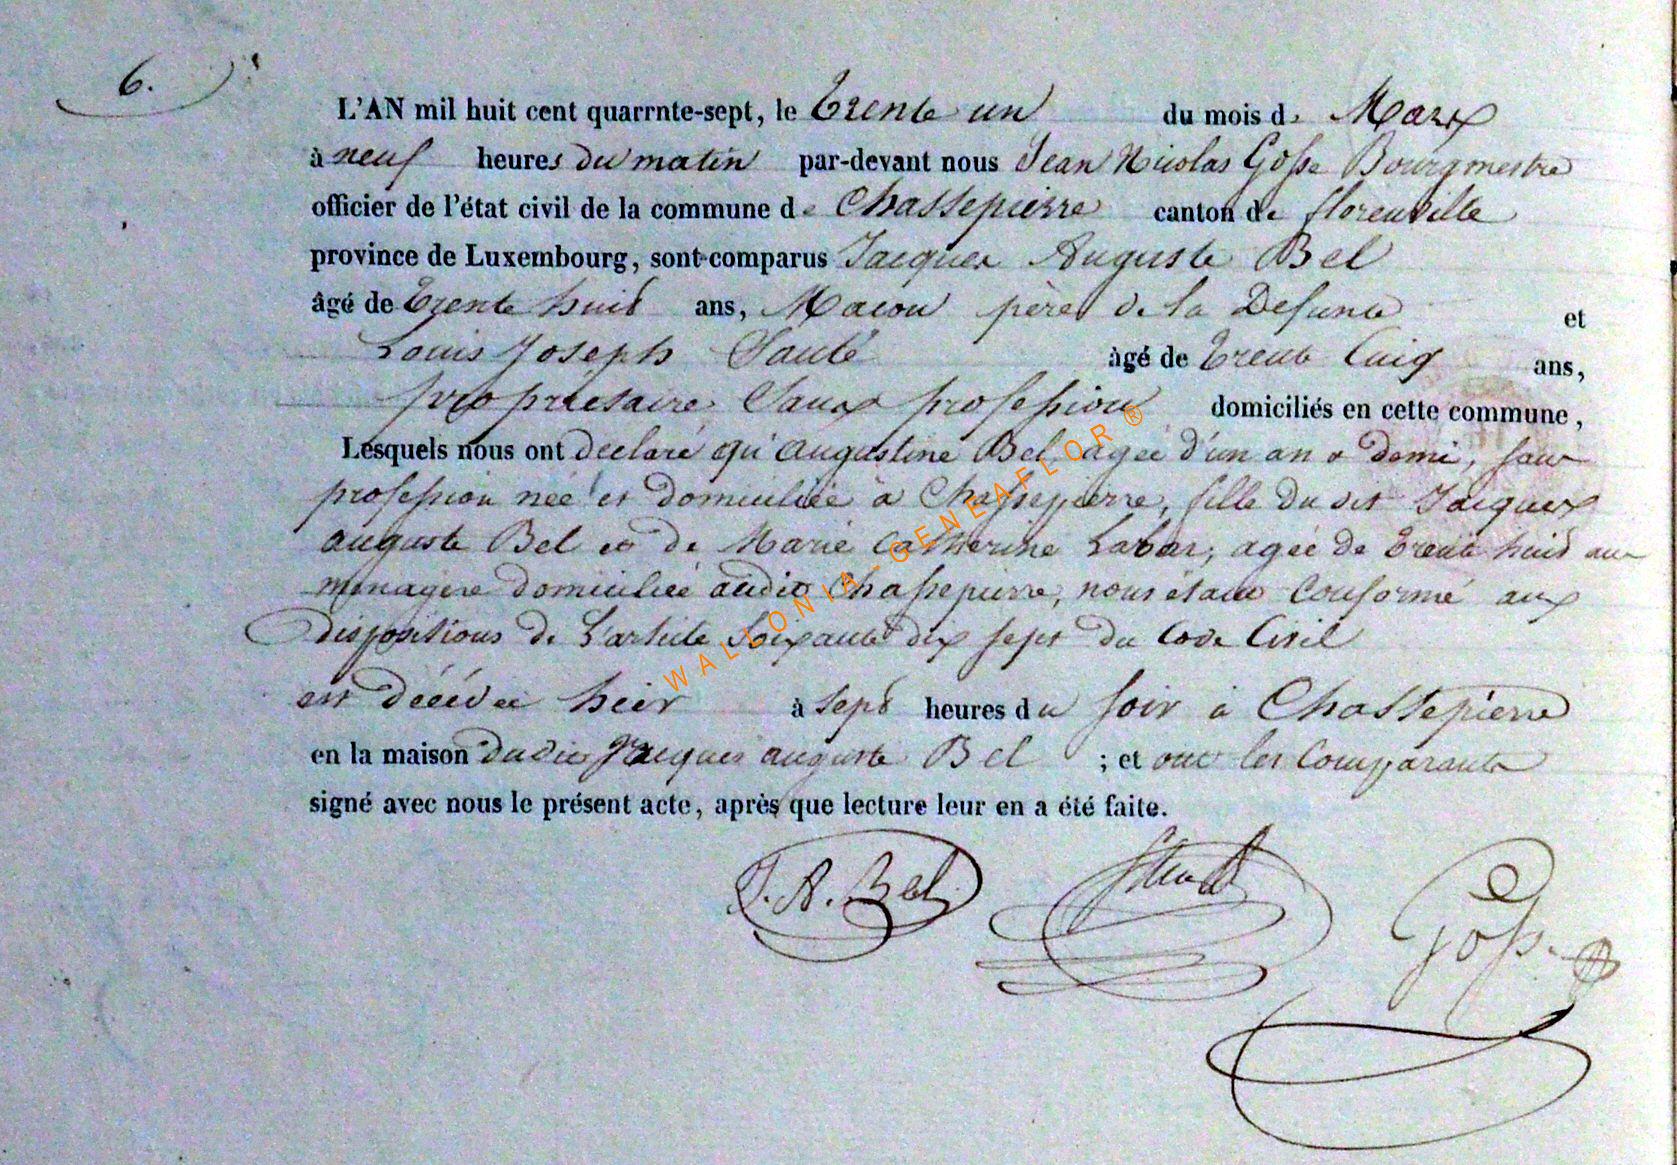 6.
L'AN mil huit cent quarrnte-sept, le Trente un du mois de Mars
à neuf heures du matin par-devant nous Jean Nicolas Gosse Bourgmestre
officier de l'état civil de la commune de Chassepierre canton de florenville
province de Luxembourg, sont comparus Jacques Auguste Bel
âgé de Trente huit ans, Macon père de la Defunte et
Louis Joseph âgé de Trente Cinq ans,
propriétaire Sans profession domiciliés en cette commune,
Lesquels nous ont declaré qu'augustine Bel, agée d'un an & demi, sans
profession née et domiciliée à Chassepierre, fille du dit Jacques
auguste Bel et de Marie Catherine Labar, agée de Trente huit ans
menagère domiciliée audit Chassepierre, nous étant Conformé aux
dispositions de L'article Soixante dix sept du Code Civil
est décédée hier à Sept heures du soir à Chassepierre
en la maison dudit Jacques auguste Bel ; et ont les Comparants
signé avec nous le présent acte, après que lecture leur en a été faite.
J. A. Bel Gosse
WALLONIA-GENEAFLOR ®